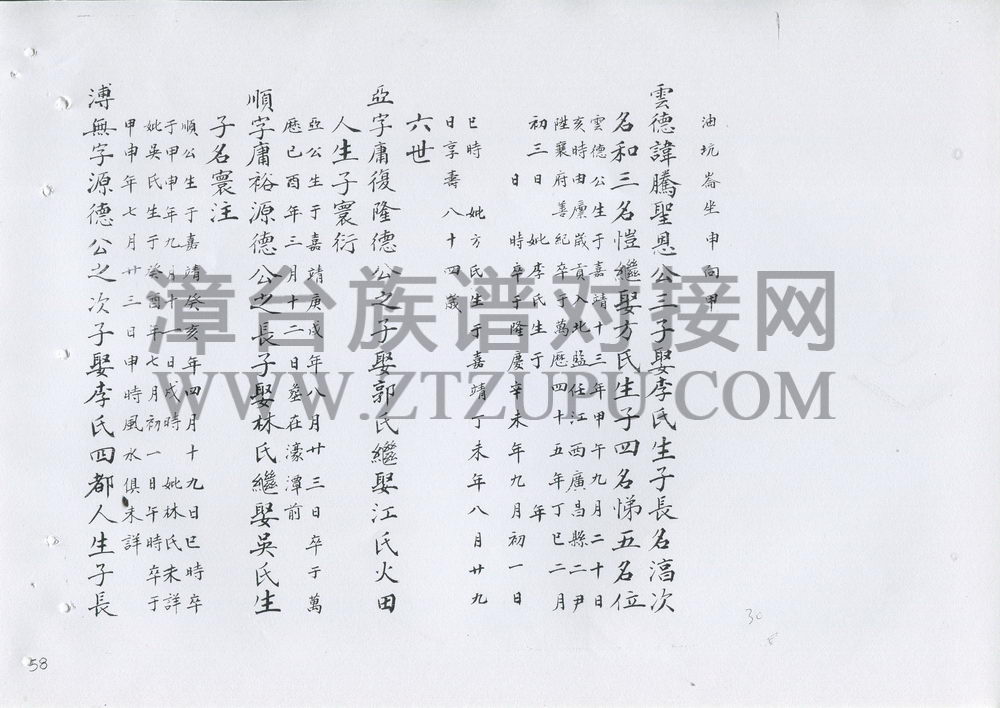 油坑崙坐申向甲
雲德諱騰聖恩公三子娶李氏生子長名滈次
名和三名愷繼娶方氏生子四名悌五名位
雲德公生于嘉靖十三年甲午九月二十日
亥時由廪歲貢入北監任江西廣昌縣二尹
陞襄府善紀卒于萬歷四十五年丁巳二月
初三日 妣李氏生于 年
日 時卒于隆慶辛未年九月初一日
巳時 妣方氏生于嘉靖丁未年八月廿九
日享壽八十四歲
六世
亞字庸復隆德公之子娶郭氏繼娶江氏火田
人生子寰衍
亞公生于嘉靖庚戌年八月廿三日卒于萬
歷己酉年三月十二日墓在濠潭前
順字庸裕源德公之長子娶林氏繼娶吳氏生
子名寰注
順公生于嘉靖癸亥年四月十九日巳時卒
于甲申年九月十一日戌時 妣林氏未詳
妣吳氏生于癸酉年七月初一日午時卒于
甲申年七月廿三日申時風水俱未詳
溥無字源德公之次子娶李氏四都人生子長
58
30
漳台族谱对接网
WWW.ZTZUPU.COM